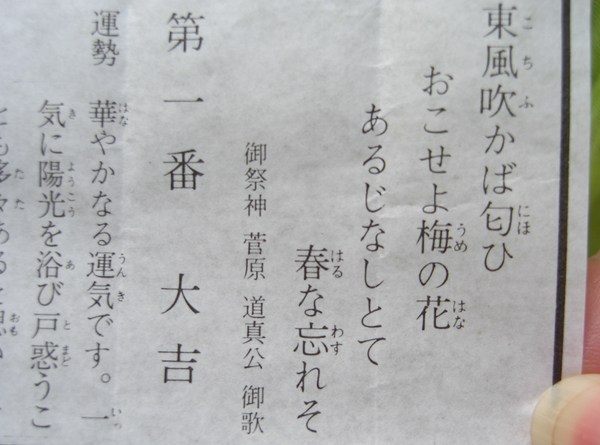 東風吹かば匂ひ
おこせよ梅の花
あるじなしとて
春な忘れそ
御祭神 菅原 道真公 御歌
第一番 大吉
運勢 華やかなる運気です。一
気に陽光を浴び戸惑うこ
とも多々あると思い